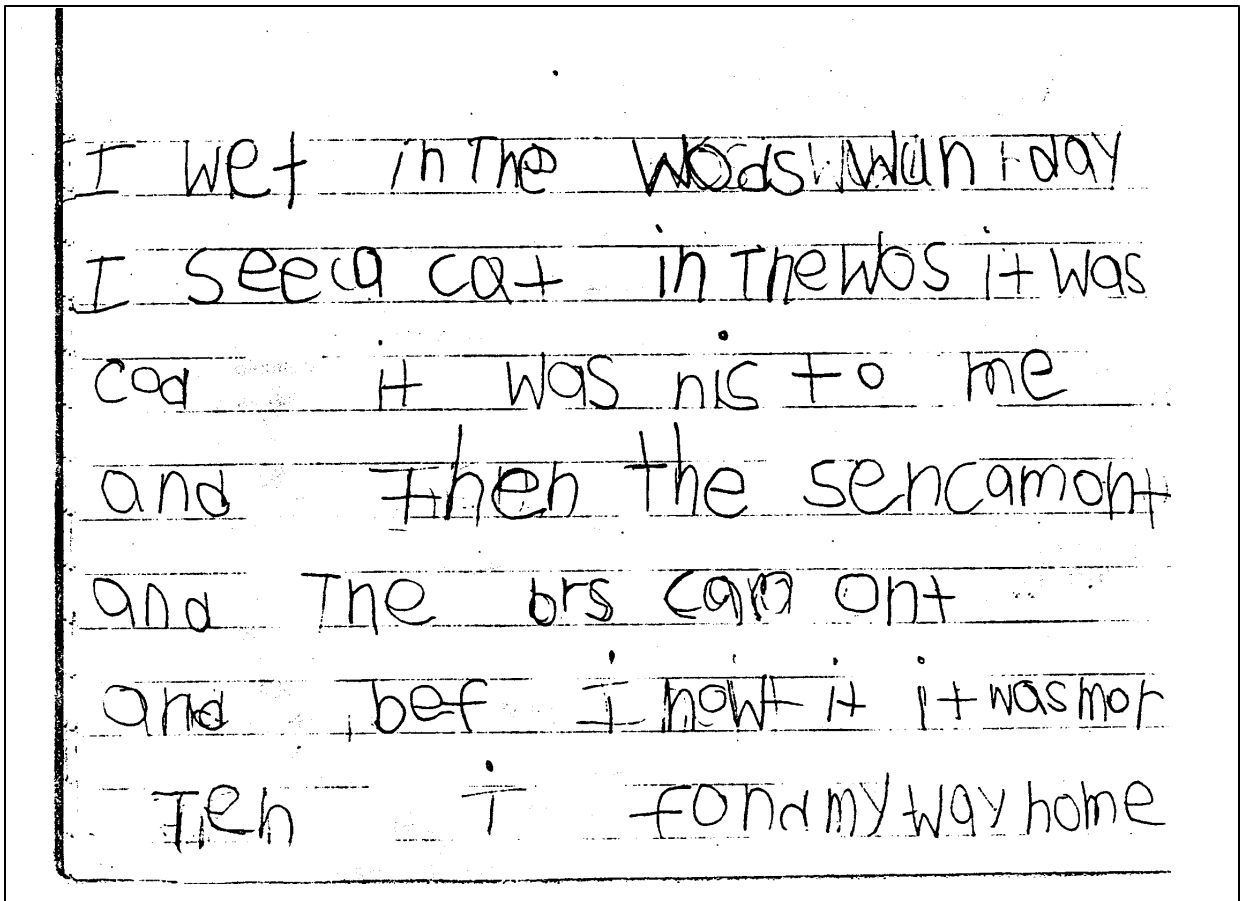 I wet in The Wods Wun day
I see a cat in The Wos it was
cod it was nis to me
and then the sen cam ont
and The brs cam ont
and bef I nowt it it was mor
Ten i fond my way home